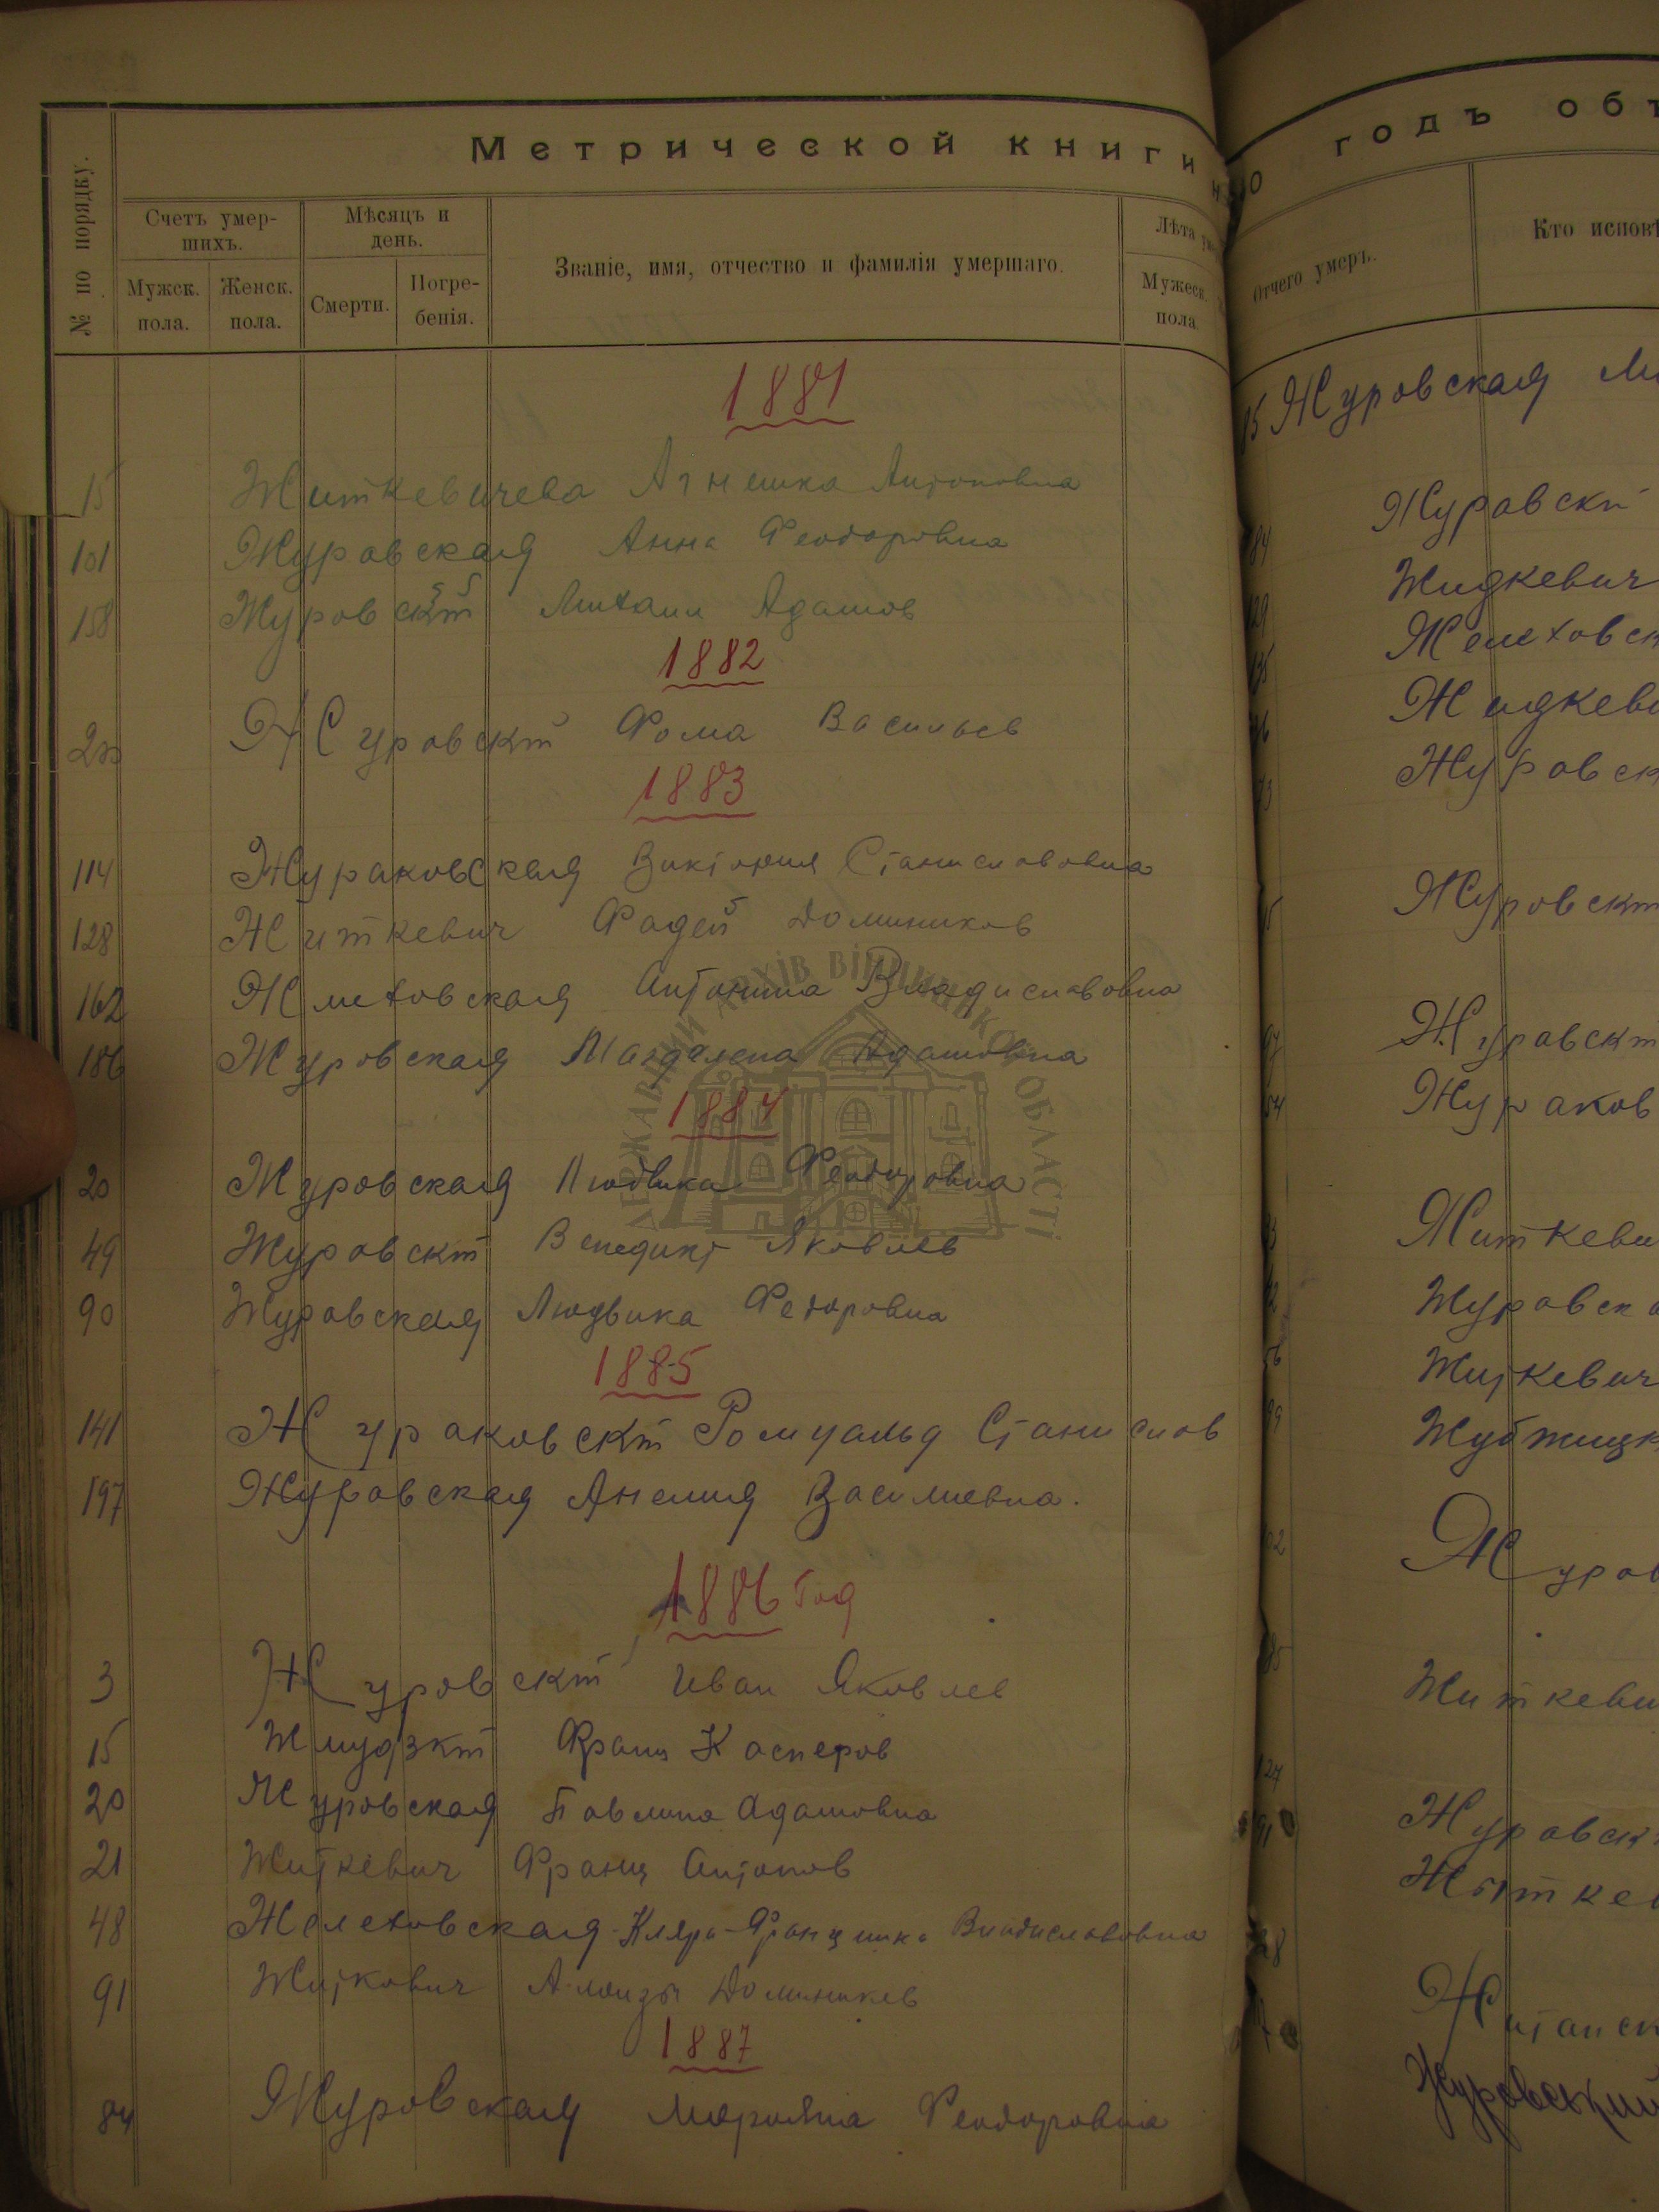 Метрической книги
№ по порядку.
Счетъ умер-
шихъ.
Мужск.
пола.
Женск.
пола.
Мѣсяцъ и
день.
Смерти.
Погре-
бенія.
Званіе, имя, отчество и фамилія умершаго.
Лѣта
Мужеск.
пола.
1881
15 Житкевичева Агнешка Антоновна
101 Журовская Анна Феодоровна
158 Журовскій Михаил Адамов
1882
Журовскій Фома Васильев
1883
114 Жураковская Виктория Станиславовна
128 Житкевич Фадей Домиников
162 Жметовская Антонина Владиславовна
186 Журовская Магдалена Адамовна
1884
20 Журовская Людвика Феодоровна
49 Журовскій Венедикт Яковлев
90 Журовская Людвика Федоровна
1885
141 Жураковскій Ромуальд Станислов
197 Журовская Анелия Василиевна.
1886 Год
3 Журовскій Иван Яковлев
15 Жмудзкій Франц Касперов
20 Журовская Павлина Адамовна
21 Житкевич Франц Антонов
48 Желеховская-Кляра-Францишка Владиславовна
91 Житкович Алоизы Домиников
1887
84 Журовская Марияна Феодоровна
годъ объ
Отчего умеръ.
Кто исповѣ
15 Журовская Ма
84 Журавскі
129 Жидкевич
135 Желеховск
Жидкеви
Журовск
Журовскій
Журавскій
54 Жураков
Житкеви
Журовск
56 Житкевич
99 Жубжицк
Журов
Житкеви
124 Журавск
91 Житкев
Житанск
Журовский
ДЕРЖАВНИЙ АРХІВ ВІННИЦЬКОЇ ОБЛАСТІ